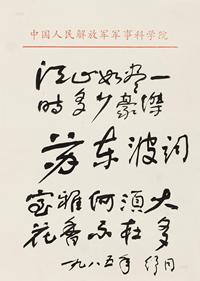 中国人民解放军军事科学院
江山如畫一
時多少豪傑
苏东波词
室雅何須大
花香不在多
一九八五年 舒同